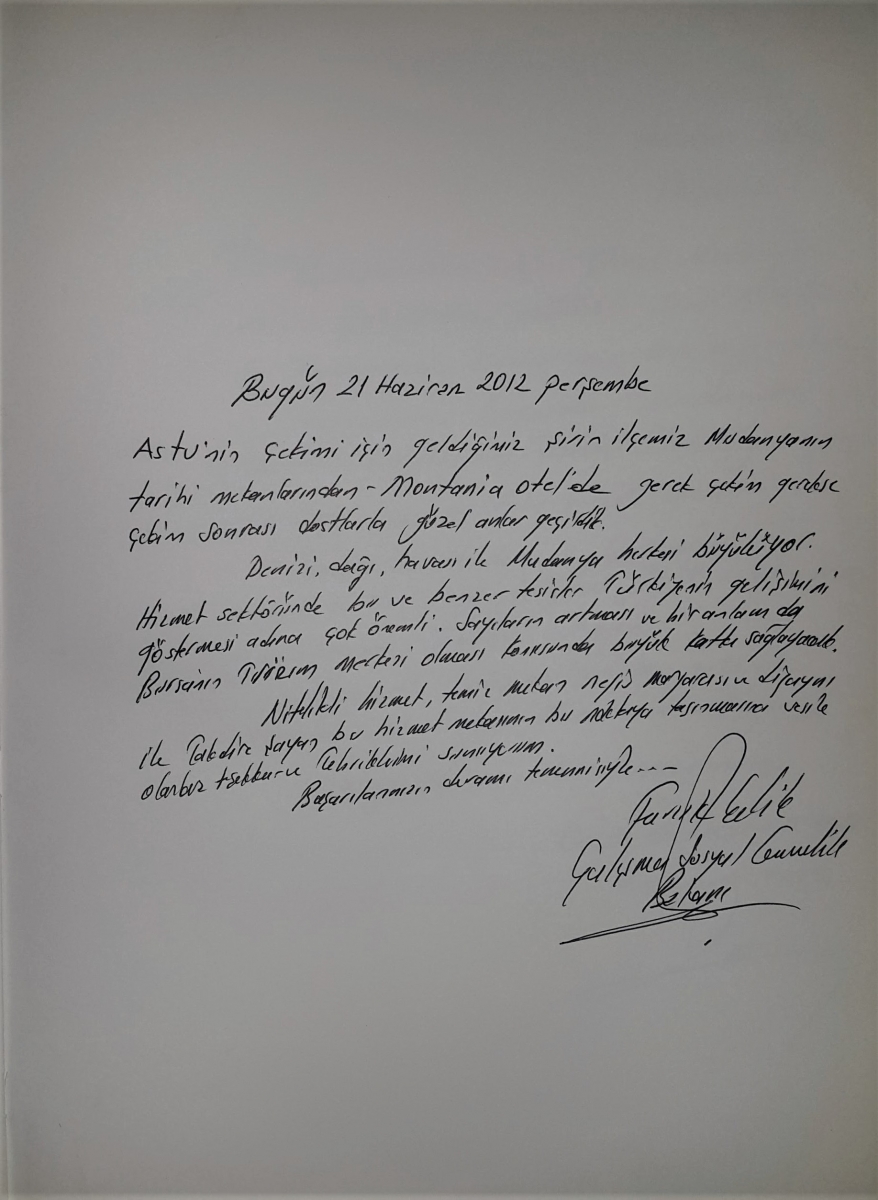 Bugün 21 Haziran 2012 perşembe
Astv'nin çekimi için geldiğimiz şirin ilçemiz Mudanyanın
tarihi mekanlarından - Montania otel'de gerek çekim gerekse
çekim sonrası dostlarla güzel anlar geçirdik.
Denizi, dağı, havası ile Mudanya herkesi büyülüyor.
Hizmet sektöründe bu ve benzer tesisler Türkiyenin gelişimini
göstermesi adına çok önemli. Sayıların artması ve bir anlamda
Bursanın Turizm merkezi olması konusunda büyük katkı sağlayacak.
Nitelikli hizmet, temiz mekan nefis manzarası ve dizaynı
ile Takdire şayan bu hizmet mekanının bu noktaya taşınmasına vesile
teşekkür ve Tebriklerimi sunuyorum.
Başarılarınızın devamı temennisiyle---
Faruk Çelik
Çalışma Sosyal Güvenlik
Bakanı